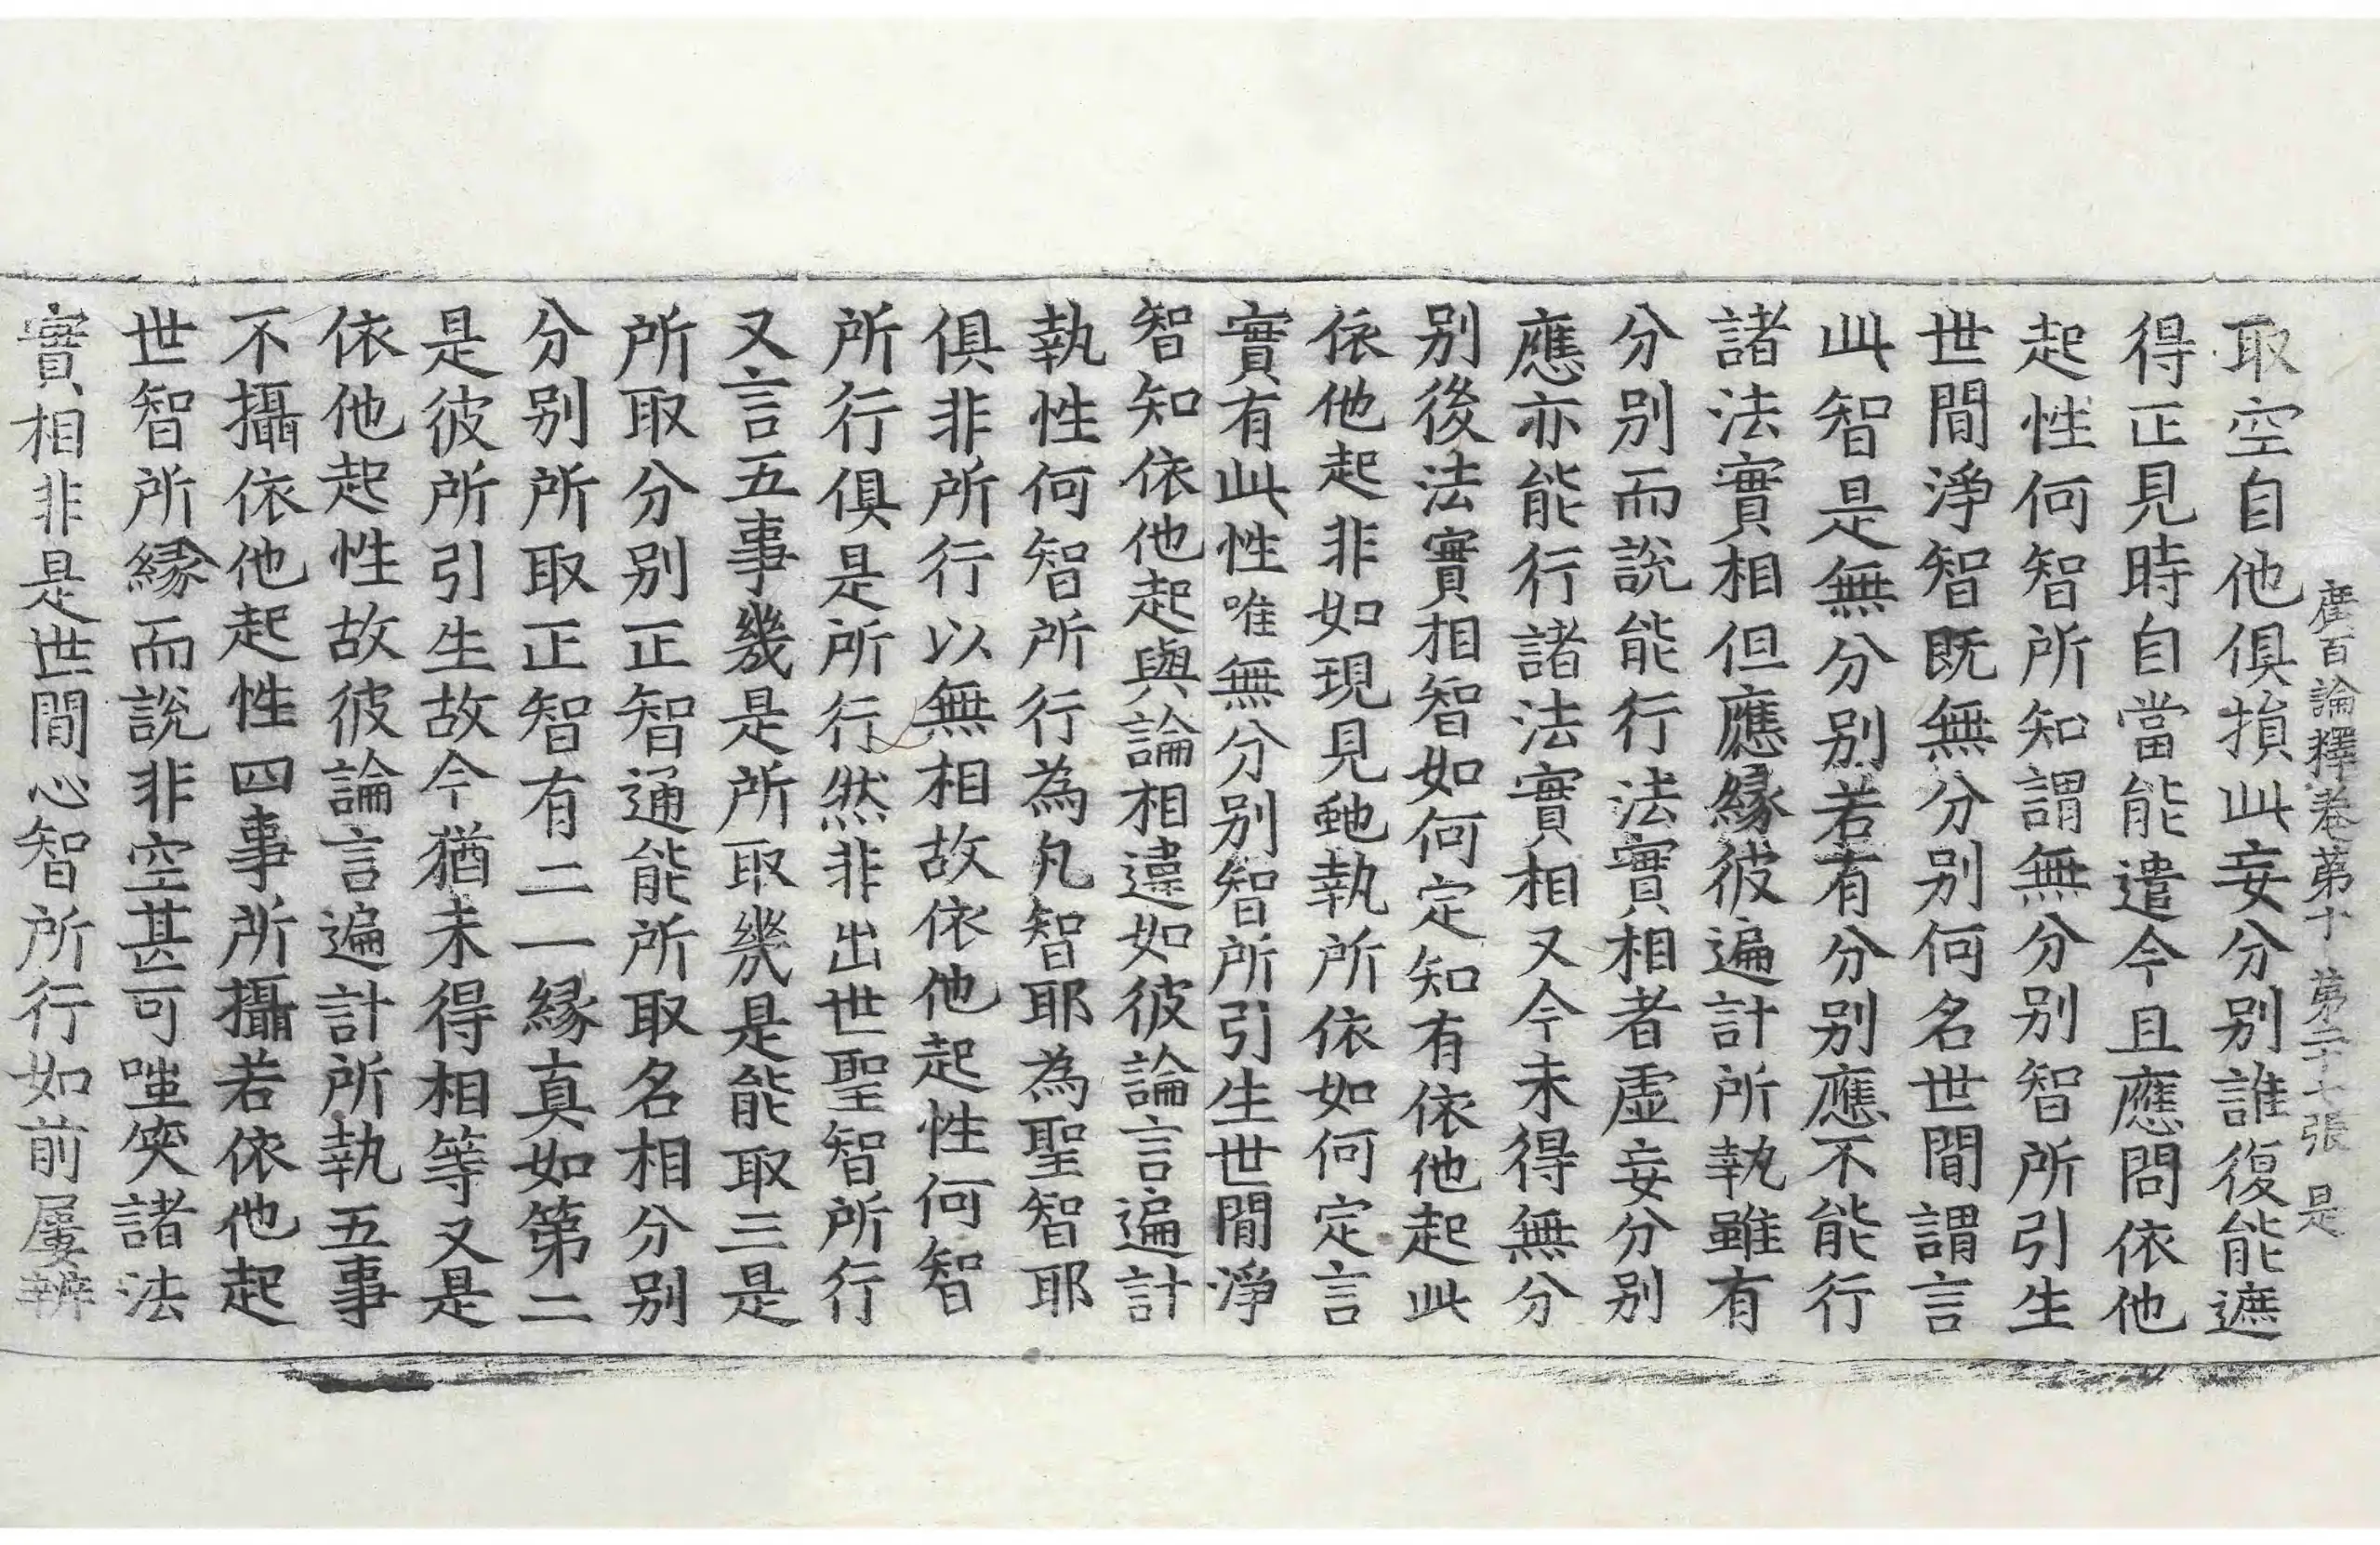 廣百論釋卷第十 第二十七張 是
取空自他俱損此妄分別誰復能遮
得正見時自當能遣今且應問依他
起性何智所知謂無分別智所引生
世間淨智既無分別何名世間謂言
此智是無分別若有分別應不能行
諸法實相但應緣彼遍計所執雖有
分別而說能行法實相者虛妄分別
應亦能行諸法實相又今未得無分
別後法實相智如何定知有依他起此
依他起非如現見虵執所依如何定言
實有此性唯無分別智所引生世間淨
智知依他起與論相違如彼論言遍計
執性何智所行為凡智耶為聖智耶
俱非所行以無相故依他起性何智
所行俱是所行然非出世聖智所行
又言五事幾是所取幾是能取三是
所取分別正智通能所取名相分別
分別所取正智有二一緣真如第二
是彼所引生故今猶未得相等又是
依他起性故彼論言遍計所執五事
不攝依他起性四事所攝若依他起
世智所緣而說非空甚可嗤笑諸法
實相非是世間心智所行如前屢辨